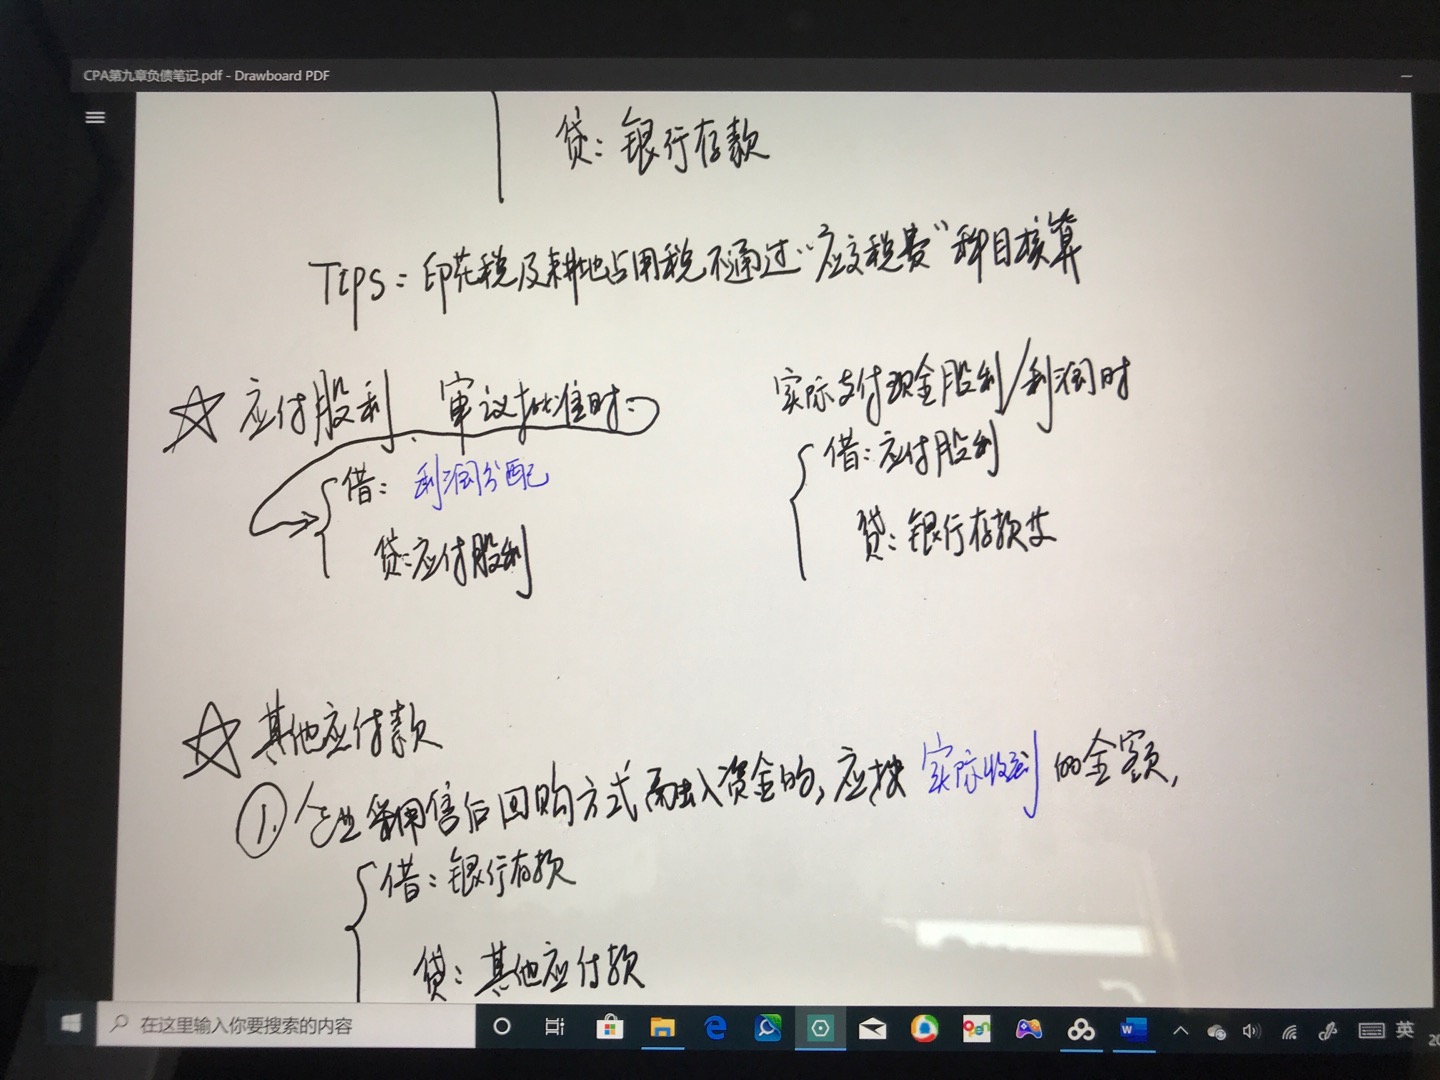 CPA第九章负债笔记.pdf - Drawboard PDF
贷：银行存款
TIPS：印花税及耕地占用税不通过“应交税费”科目核算
☆ 应付股利、审议批准时：
借：利润分配
贷：应付股利
实际支付现金股利/利润时
借：应付股利
贷：银行存款等
☆ 其他应付款
①. 企业采用售后回购方式融入资金的，应按实际收到的金额，
借：银行存款
贷：其他应付款
在这里输入你要搜索的内容
英